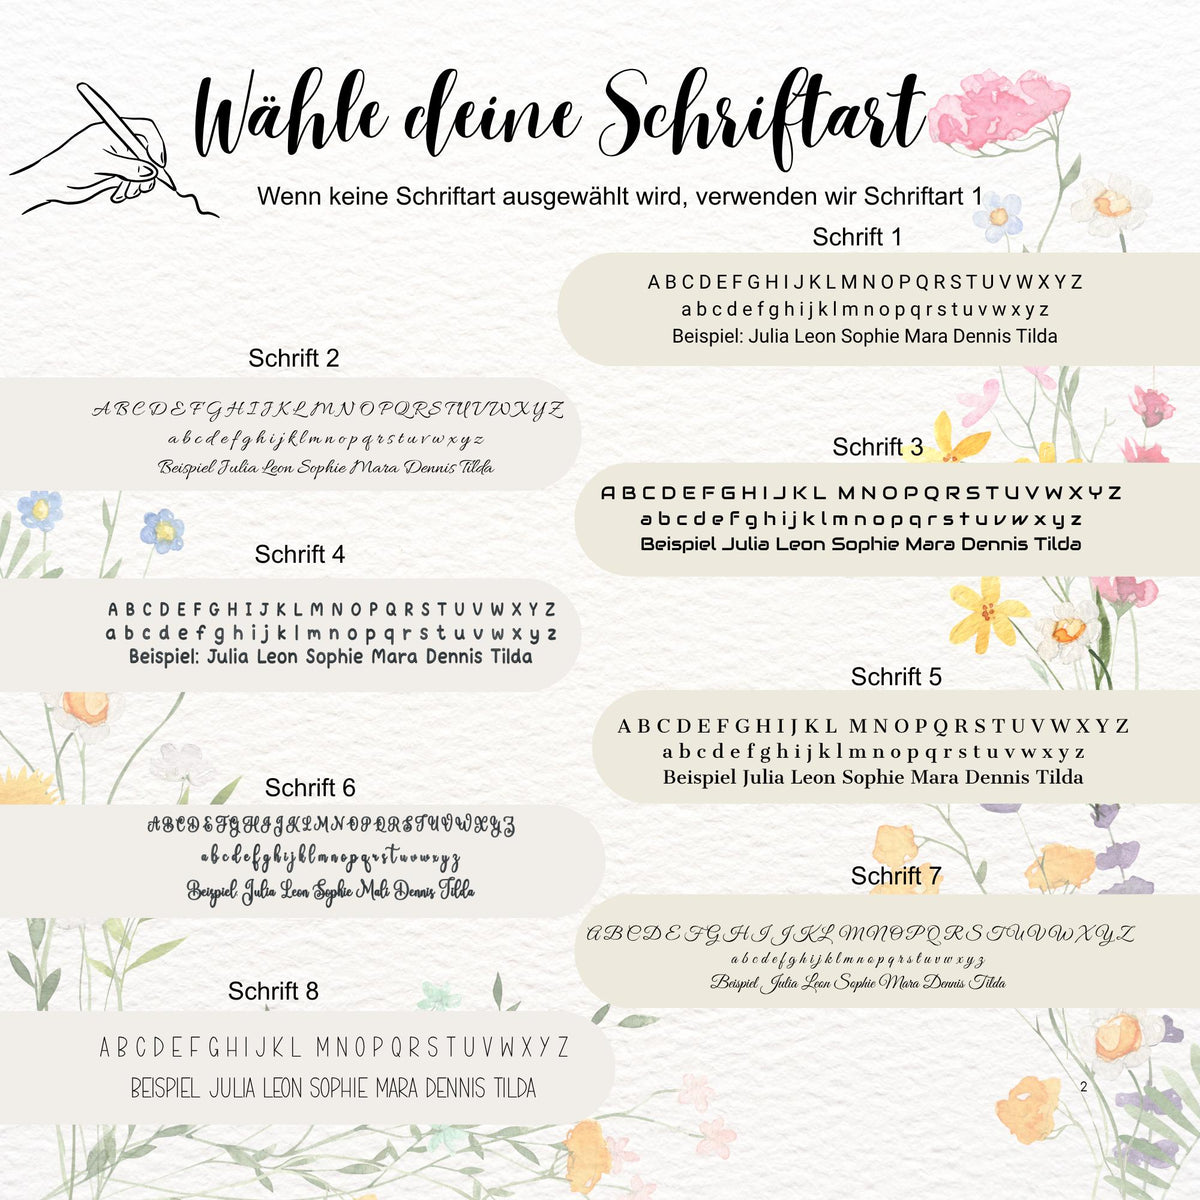 Wähle deine Schriftart
Wenn keine Schriftart ausgewählt wird, verwenden wir Schriftart 1
Schrift 1
A B C D E F G H I J K L M N O P Q R S T U V W X Y Z
a b c d e f g h i j k l m n o p q r s t u v w x y z
Beispiel: Julia Leon Sophie Mara Dennis Tilda
Schrift 2
A B C D E F G H I J K L M N O P Q R S T U V W X Y Z
a b c d e f g h i j k l m n o p q r s t u v w x y z
Beispiel Julia Leon Sophie Mara Dennis Tilda
Schrift 3
A B C D E F G H I J K L M N O P Q R S T U V W X Y Z
a b c d e f g h i j k l m n o p q r s t u v w x y z
Beispiel Julia Leon Sophie Mara Dennis Tilda
Schrift 4
A B C D E F G H I J K L M N O P Q R S T U V W X Y Z
a b c d e f g h i j k l m n o p q r s t u v w x y z
Beispiel: Julia Leon Sophie Mara Dennis Tilda
Schrift 5
A B C D E F G H I J K L M N O P Q R S T U V W X Y Z
a b c d e f g h i j k l m n o p q r s t u v w x y z
Beispiel Julia Leon Sophie Mara Dennis Tilda
Schrift 6
A B C D E F G H I J K L M N O P Q R S T U V W X Y Z
a b c d e f g h i j k l m n o p q r s t u v w x y z
Beispiel: Julia Leon Sophie Mali Dennis Tilda
Schrift 7
A B C D E F G H I J K L M N O P Q R S T U V W X Y Z
a b c d e f g h i j k l m n o p q r s t u v w x y z
Beispiel Julia Leon Sophie Mara Dennis Tilda
Schrift 8
A B C D E F G H I J K L M N O P Q R S T U V W X Y Z
BEISPIEL JULIA LEON SOPHIE MARA DENNIS TILDA
2